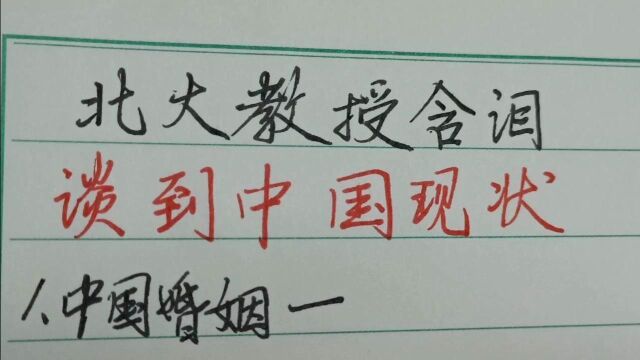 北大教授含泪
谈到中国现状
1、中国婚姻一